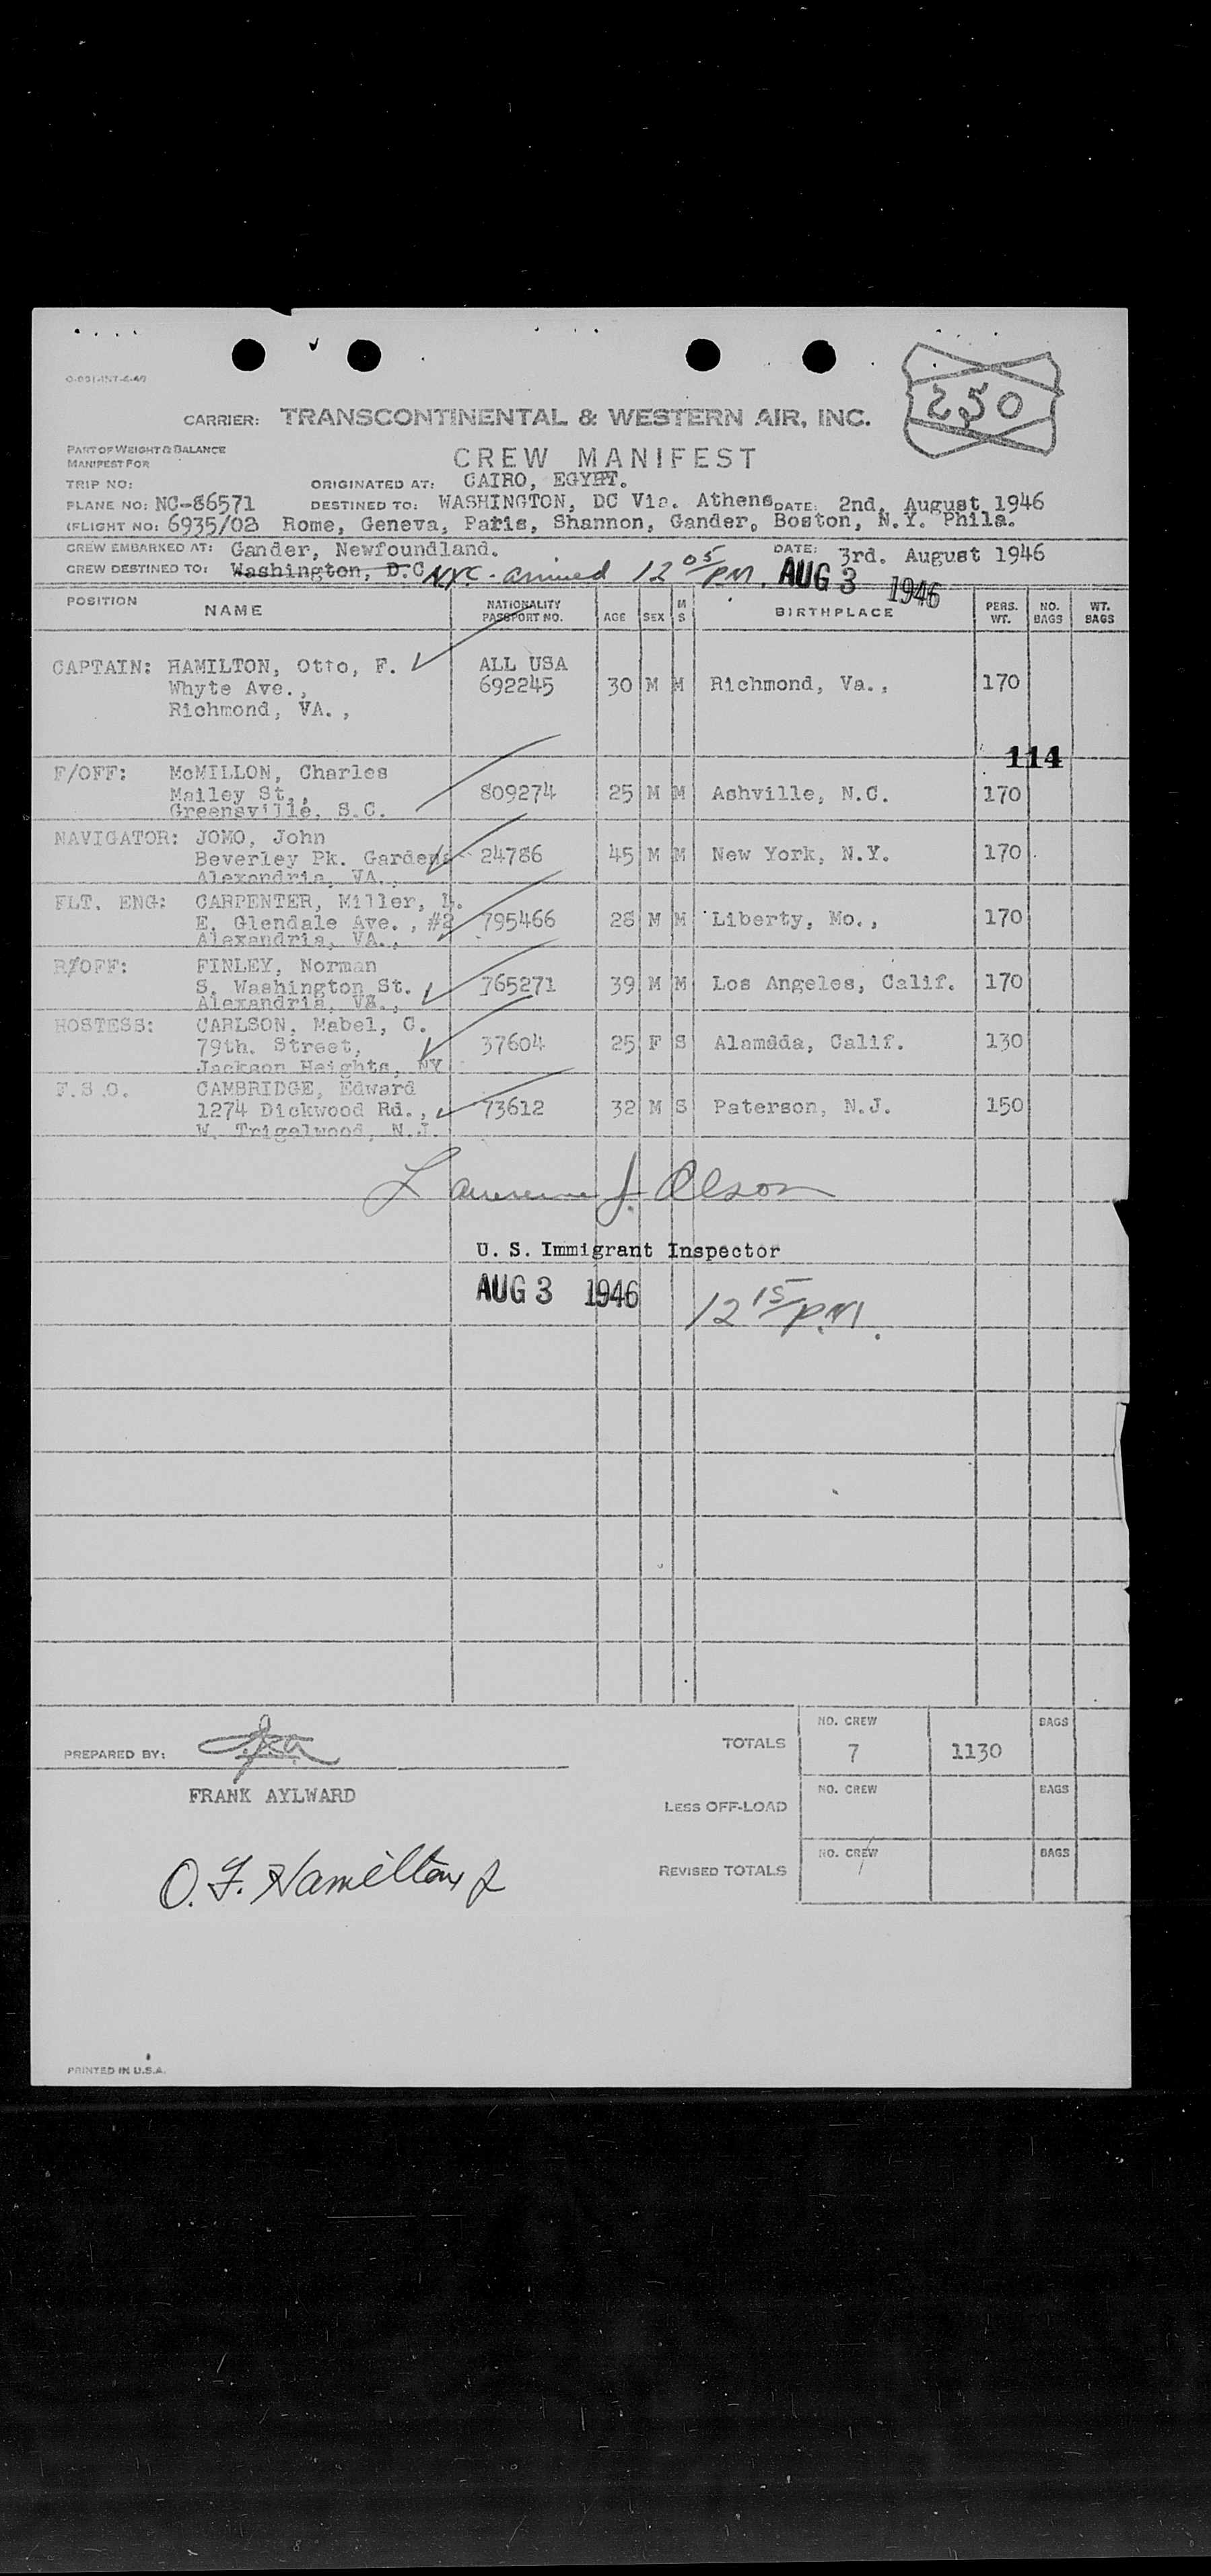 250
CARRIER: TRANSCONTINENTAL & WESTERN AIR, INC.
PART OF WEIGHT & BALANCE
MANIFEST FOR
CREW MANIFEST
TRIP NO: ORIGINATED AT: CAIRO, EGYPT.
PLANE NO: NC-86571 DESTINED TO: WASHINGTON, DC Via. Athens DATE: 2nd. August 1946
(FLIGHT NO: 6935/02 Rome, Geneva, Paris, Shannon, Gander, Boston, N.Y. Phila.
CREW EMBARKED AT: Gander, Newfoundland. DATE: 3rd. August 1946
CREW DESTINED TO: Washington, D.C NYC - arrived 12 05 PM. AUG 3 1946
POSITION NAME NATIONALITY PASSPORT NO. AGE SEX M S BIRTHPLACE PERS. WT. NO. BAGS WT. BAGS
CAPTAIN: HAMILTON, Otto, F. ALL USA
Whyte Ave., 692245 30 M M Richmond, Va., 170
Richmond, VA.,
114
F/OFF: McMILLON, Charles
Mailey St., 809274 25 M M Ashville, N.C. 170
Greensville, S.C.
NAVIGATOR: JOMO, John
Beverley Pk. Gardens 24786 45 M M New York, N.Y. 170
Alexandria, VA.,
FLT. ENG: CARPENTER, Miller, L.
E. Glendale Ave., #2 795466 28 M M Liberty, Mo., 170
Alexandria, VA.,
R/OFF: FINLEY, Norman
S. Washington St. 765271 39 M M Los Angeles, Calif. 170
Alexandria, VA.,
HOSTESS: CARLSON, Mabel, C.
79th. Street, 37604 25 F S Alamada, Calif. 130
Jackson Heights, NY
F.S.O. CAMBRIDGE, Edward
1274 Dickwood Rd., 73612 32 M S Paterson, N.J. 150
W. Trigelwood, N.J.
Lawrence J. Olson
U. S. Immigrant Inspector
AUG 3 1946 12 15 P.M.
NO. CREW BAGS
PREPARED BY: TOTALS 7 1130
FRANK AYLWARD
NO. CREW BAGS
LESS OFF-LOAD
NO. CREW BAGS
REVISED TOTALS
O. F. Hamilton Jr
PRINTED IN U.S.A.